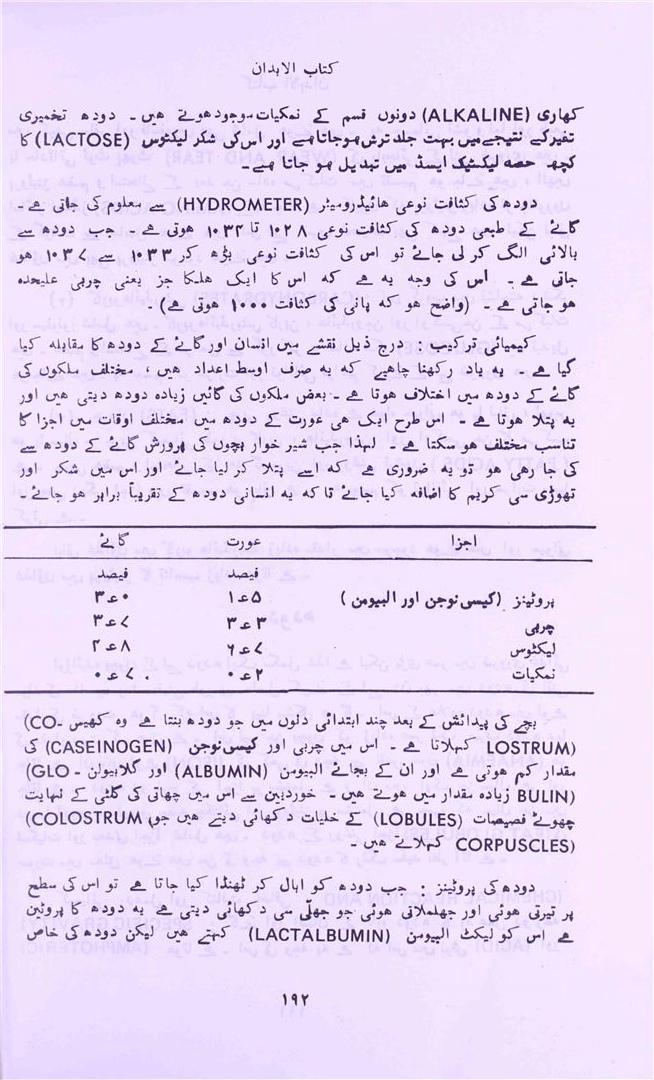 کتاب الابدان
کھاری (ALKALINE) دونوں قسم کے نمکیات موجود ہوتے ہیں۔ دودھ تخمیری
تغیر کے نتیجے میں بہت جلد ترش ہو جاتا ہے اور اس کی شکر لیکٹوس (LACTOSE) کا
کچھ حصہ لیکٹیک ایسڈ میں تبدیل ہو جاتا ہے۔
دودھ کی کثافت نوعی ہائیڈرومیٹر (HYDROMETER) سے معلوم کی جاتی ہے۔
گائے کے طبعی دودھ کی کثافت نوعی ۱۰۲۸ تا ۱۰۳۲ ہوتی ہے۔ جب دودھ سے
بالائی الگ کر لی جائے تو اس کی کثافت نوعی بڑھ کر ۱۰۳۳ سے ۱۰۳۷ ہو
جاتی ہے۔ اس کی وجہ یہ ہے کہ اس کا ایک ہلکا جز یعنی چربی علیحدہ
ہو جاتی ہے۔ (واضح ہو کہ پانی کی کثافت ۱۰۰۰ ہوتی ہے)۔
کیمیائی ترکیب : درج ذیل نقشے میں انسان اور گائے کے دودھ کا مقابلہ کیا
گیا ہے۔ یہ یاد رکھنا چاہیے کہ یہ صرف اوسط اعداد ہیں، مختلف ملکوں کی
گائے کے دودھ میں اختلاف ہوتا ہے۔ بعض ملکوں کی گائیں زیادہ دودھ دیتی ہیں اور
یہ پتلا ہوتا ہے۔ اس طرح ایک ہی عورت کے دودھ میں مختلف اوقات میں اجزا کا
تناسب مختلف ہو سکتا ہے۔ لہذا جب شیر خوار بچوں کی پرورش گائے کے دودھ سے
کی جا رہی ہو تو یہ ضروری ہے کہ اسے پتلا کر لیا جائے اور اس میں شکر اور
تھوڑی سی کریم کا اضافہ کیا جائے تا کہ یہ انسانی دودھ کے تقریباً برابر ہو جائے۔
اجزا عورت گائے
فیصد فیصد
پروٹینز (کیسی نوجن اور البیومن) ۱ء۵ ۳ء۰
چربی ۳ء۳ ۳ء۷
لیکٹوس ۶ء۷ ۴ء۸
نمکیات ۰ء۲ ۰ء۷۰
بچے کی پیدائش کے بعد چند ابتدائی دنوں میں جو دودھ بنتا ہے وہ کھیس (CO-
LOSTRUM) کہلاتا ہے۔ اس میں چربی اور کیسی نوجن (CASEINOGEN) کی
مقدار کم ہوتی ہے اور ان کے بجائے البیومن (ALBUMIN) اور گلابیولن (GLO-
BULIN) زیادہ مقدار میں ہوتے ہیں۔ خوردبین سے اس میں چھاتی کی گلٹی کے نہایت
چھوٹے فصیصات (LOBULES) کے خلیات دکھائی دیتے ہیں جو (COLOSTRUM
CORPUSCLES) کہلاتے ہیں۔
دودھ کی پروٹینز : جب دودھ کو ابال کر ٹھنڈا کیا جاتا ہے تو اس کی سطح
پر تیرتی ہوئی اور جھلملاتی ہوئی جو جھلّی سی دکھائی دیتی ہے یہ دودھ کا پروٹین
ہے اس کو لیکٹ البیومن (LACTALBUMIN) کہتے ہیں لیکن دودھ کی خاص
۱۹۲